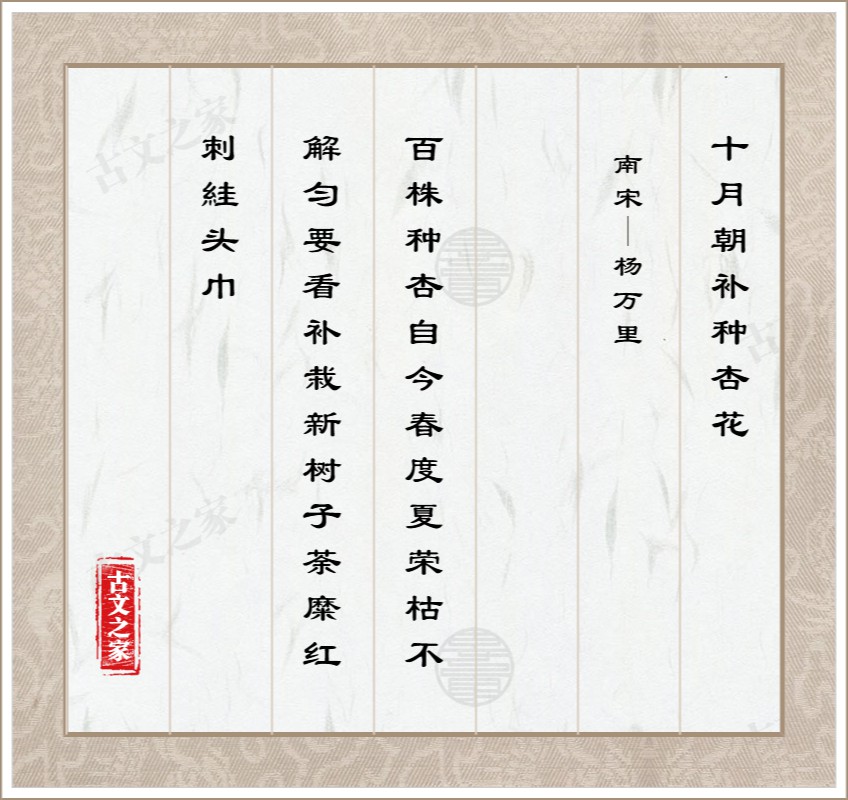 十月朝补种杏花
南宋—杨万里
百株种杏自今春度夏荣枯不
解匀要看补栽新树子荼糜红
刺絓头巾
古文之家
古文之家
古文之家